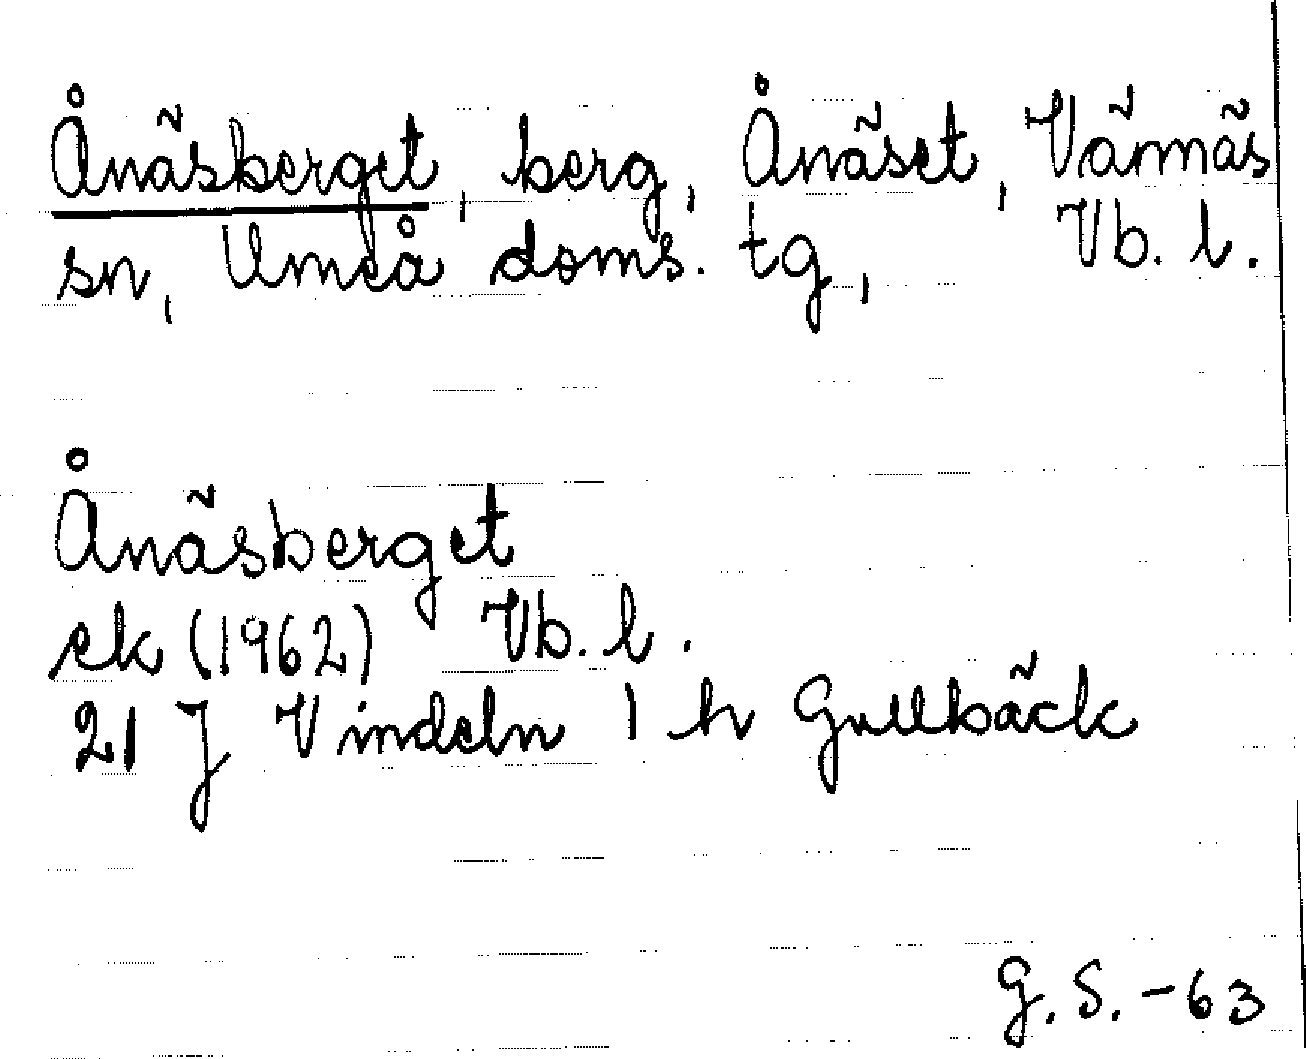 Ånäsberget, berg, Ånäset, Vännäs
sn, Umeå doms. tg, Vb. l.
Ånäsberget
ek (1962) Vb. l.
21 J Vindeln 1 h Gullbäck
G.S.-63